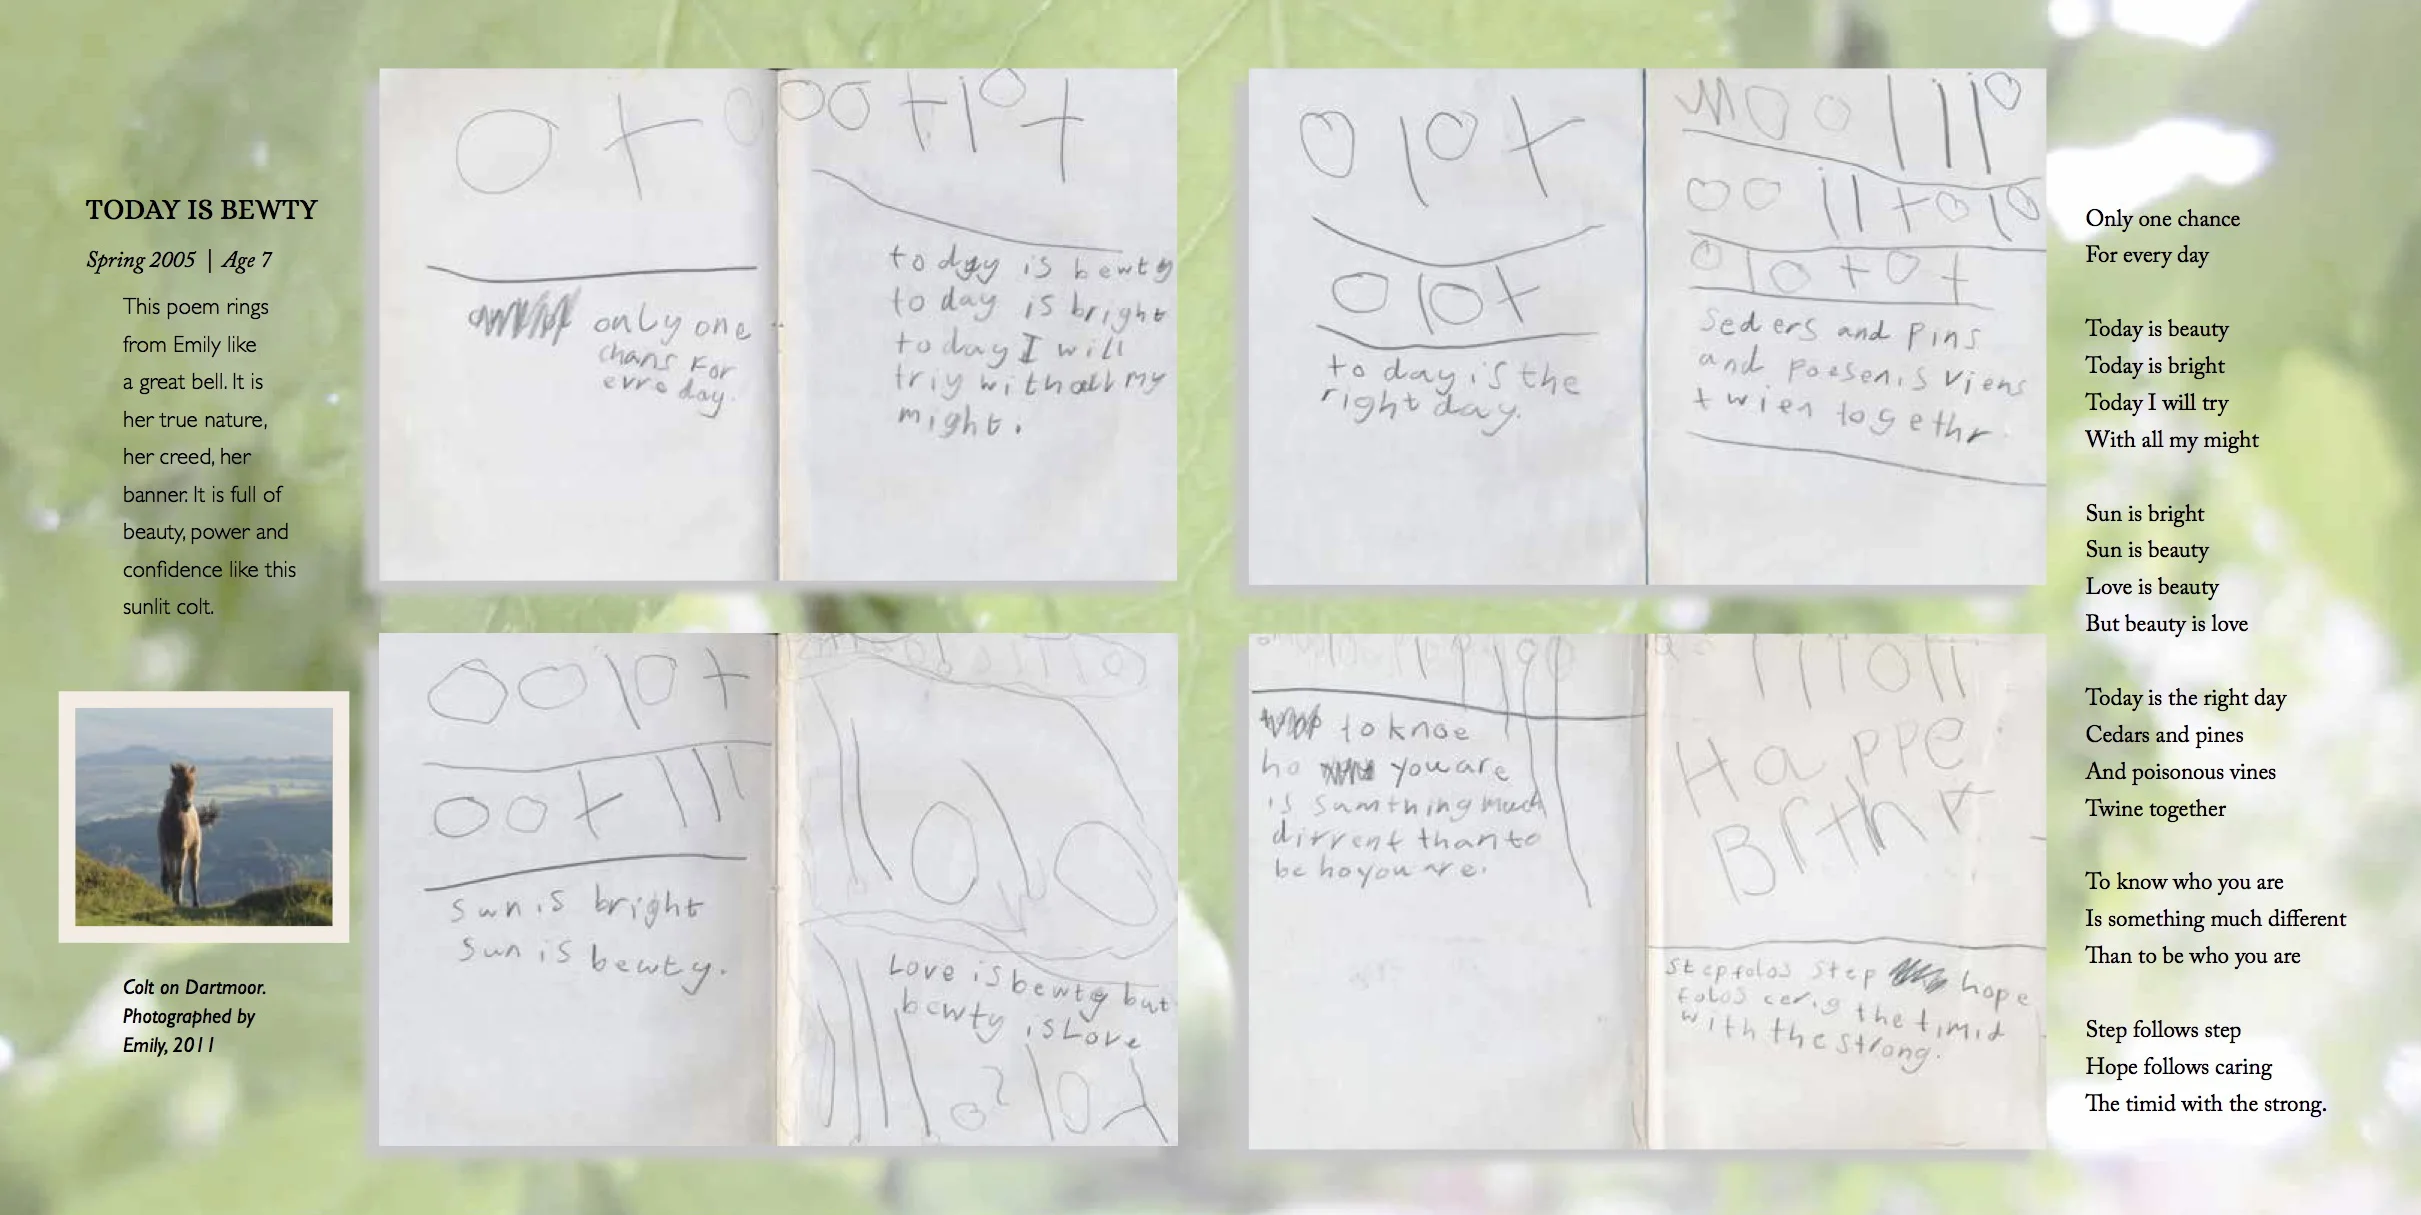 TODAY IS BEWTY
Spring 2005 | Age 7
This poem rings
from Emily like
a great bell. It is
her true nature,
her creed, her
banner. It is full of
beauty, power and
confidence like this
sunlit colt.
Colt on Dartmoor.
Photographed by
Emily, 2011
only one
chans For
evre day.
today is bewty
to day is bright
to day I will
triy with all my
might.
to day is the
right day.
seders and pins
and poesenis viens
twien togethr.
sun is bright
sun is bewty.
Love is bewty but
bewty is Love
to knoe
ho you are
is sumthing much
dirrent than to
be ho you are.
Happe
Brthr
step folos step hope
folos cering the timid
with the strong.
Only one chance
For every day
Today is beauty
Today is bright
Today I will try
With all my might
Sun is bright
Sun is beauty
Love is beauty
But beauty is love
Today is the right day
Cedars and pines
And poisonous vines
Twine together
To know who you are
Is something much different
Than to be who you are
Step follows step
Hope follows caring
The timid with the strong.